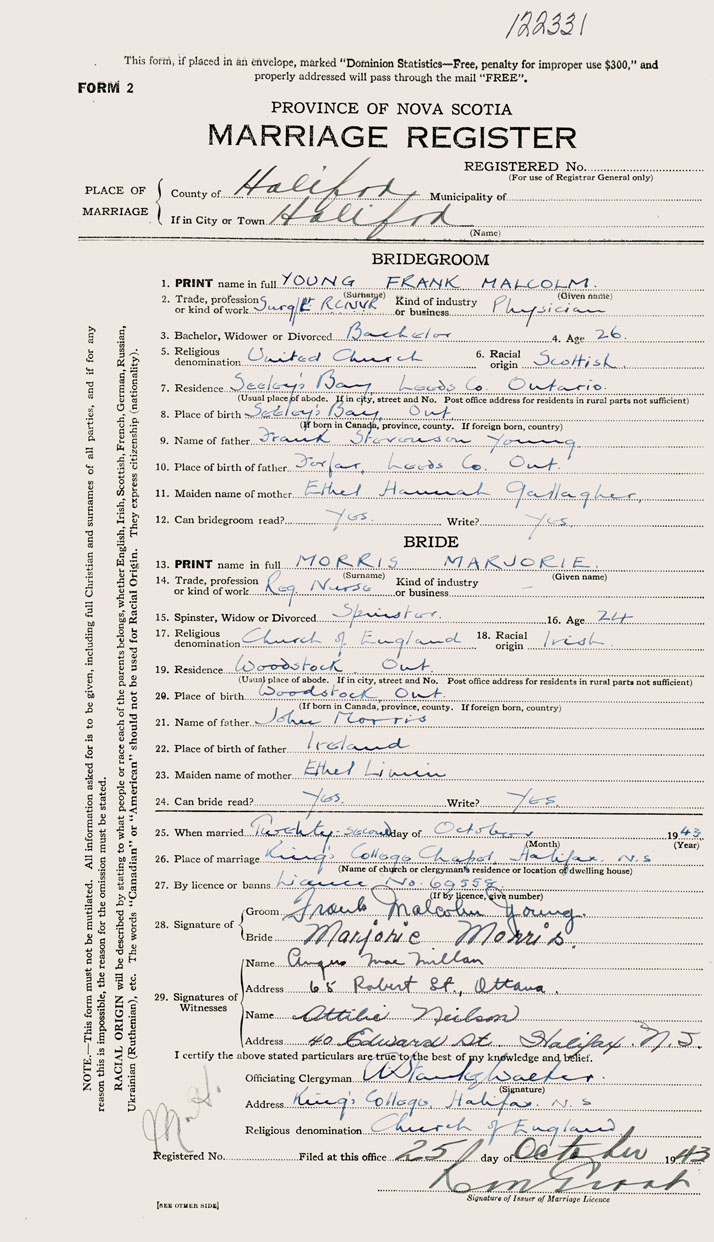 122331
This form, if placed in an envelope, marked "Dominion Statistics—Free, penalty for improper use $300," and
properly addressed will pass through the mail "FREE".
FORM 2
PROVINCE OF NOVA SCOTIA
MARRIAGE REGISTER
REGISTERED No.
(For use of Registrar General only)
PLACE OF MARRIAGE
County of Halifax Municipality of
If in City or Town Halifax
(Name)
BRIDEGROOM
1. PRINT name in full YOUNG FRANK MALCOLM.
(Surname) (Given name)
2. Trade, profession or kind of work Surg/Lt RCNVR Kind of industry or business Physician
3. Bachelor, Widower or Divorced Bachelor 4. Age 26.
5. Religious denomination United Church 6. Racial origin Scottish
7. Residence Seeley's Bay, Leeds Co. Ontario.
(Usual place of abode. If in city, street and No. Post office address for residents in rural parts not sufficient)
8. Place of birth Seeley's Bay, Ont.
(If born in Canada, province, county. If foreign born, country)
9. Name of father Frank Stevenson Young
10. Place of birth of father Forfar, Leeds Co. Ont.
11. Maiden name of mother Ethel Hannah Gallagher,
12. Can bridegroom read? Yes. Write? Yes.
BRIDE
13. PRINT name in full MORRIS MARJORIE.
(Surname) (Given name)
14. Trade, profession or kind of work Reg. Nurse Kind of industry or business –
15. Spinster, Widow or Divorced Spinster. 16. Age 24
17. Religious denomination Church of England 18. Racial origin Irish
19. Residence Woodstock, Ont.
(Usual place of abode. If in city, street and No. Post office address for residents in rural parts not sufficient)
20. Place of birth Woodstock, Ont.
(If born in Canada, province, county. If foreign born, country)
21. Name of father John Morris
22. Place of birth of father Ireland
23. Maiden name of mother Ethel
24. Can bride read? Yes. Write? Yes.
25. When married Twenty-second day of October 1943
(Month) (Year)
26. Place of marriage King's College Chapel, Halifax. N.S
(Name of church or clergyman's residence or location of dwelling house)
27. By licence or banns Licence No. 69558
(If by licence, give number)
28. Signature of
Groom Frank Malcolm Young.
Bride Marjorie Morris.
29. Signatures of Witnesses
Name Angus MacMillan
Address 65 Robert St., Ottawa.
Name Attilie Neilson
Address 40 Edward St. Halifax. N.S.
I certify the above stated particulars are true to the best of my knowledge and belief.
Officiating Clergyman A Stanley Walker.
(Signature)
Address King's College, Halifax. N.S
Religious denomination Church of England
Registered No. Filed at this office 25 day of October 1943
Signature of Issuer of Marriage Licence
[SEE OTHER SIDE]
NOTE.—This form must not be mutilated. All information asked for is to be given, including full Christian and surnames of all parties, and if for any
reason this is impossible, the reason for the omission must be stated.
RACIAL ORIGIN will be described by stating to what people or race each of the parents belongs, whether English, Irish, Scottish, French, German, Russian,
Ukrainian (Ruthenian), etc. The words "Canadian" or "American" should not be used for Racial Origin. They express citizenship (nationality).